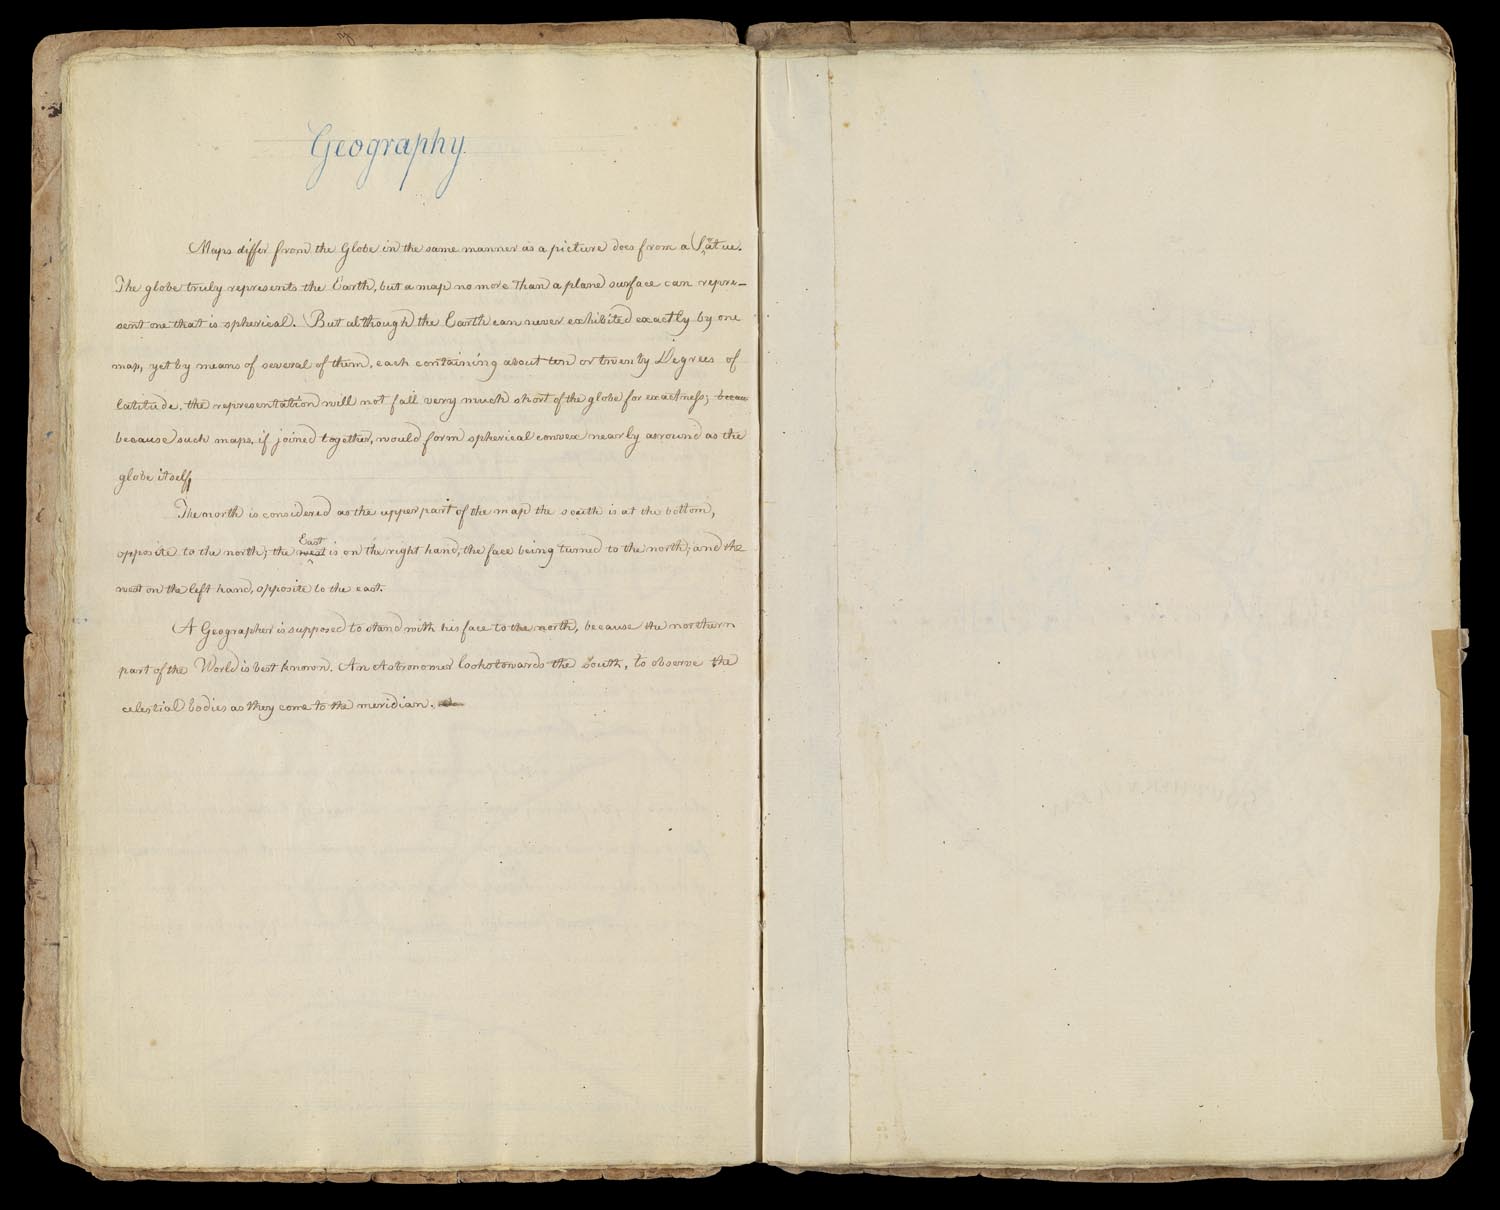 Geography.
Maps differ from the Globe in the same manner as a picture does from a Statue.
The globe truly represents the Earth, but a map no more than a plane surface can repre-
sent one that is spherical. But although the Earth can never exhibited exactly by one
map, yet by means of several of them, each containing about ten or twenty Degrees of
latitude, the representation will not fall very much short of the globe for exactness; becau
because such maps, if joined together, would form spherical convex nearly as round as the
globe itself,
The north is considered as the upper part of the map the south is at the bottom,
opposite to the north; the west East is on the right hand, the face being turned to the north; and the
west on the left hand, opposite to the east.
A Geographer is supposed to stand with his face to the north, because the northern
part of the World is best known. An Astronomer looks towards the South, to observe the
celestial bodies as they come to the meridian.